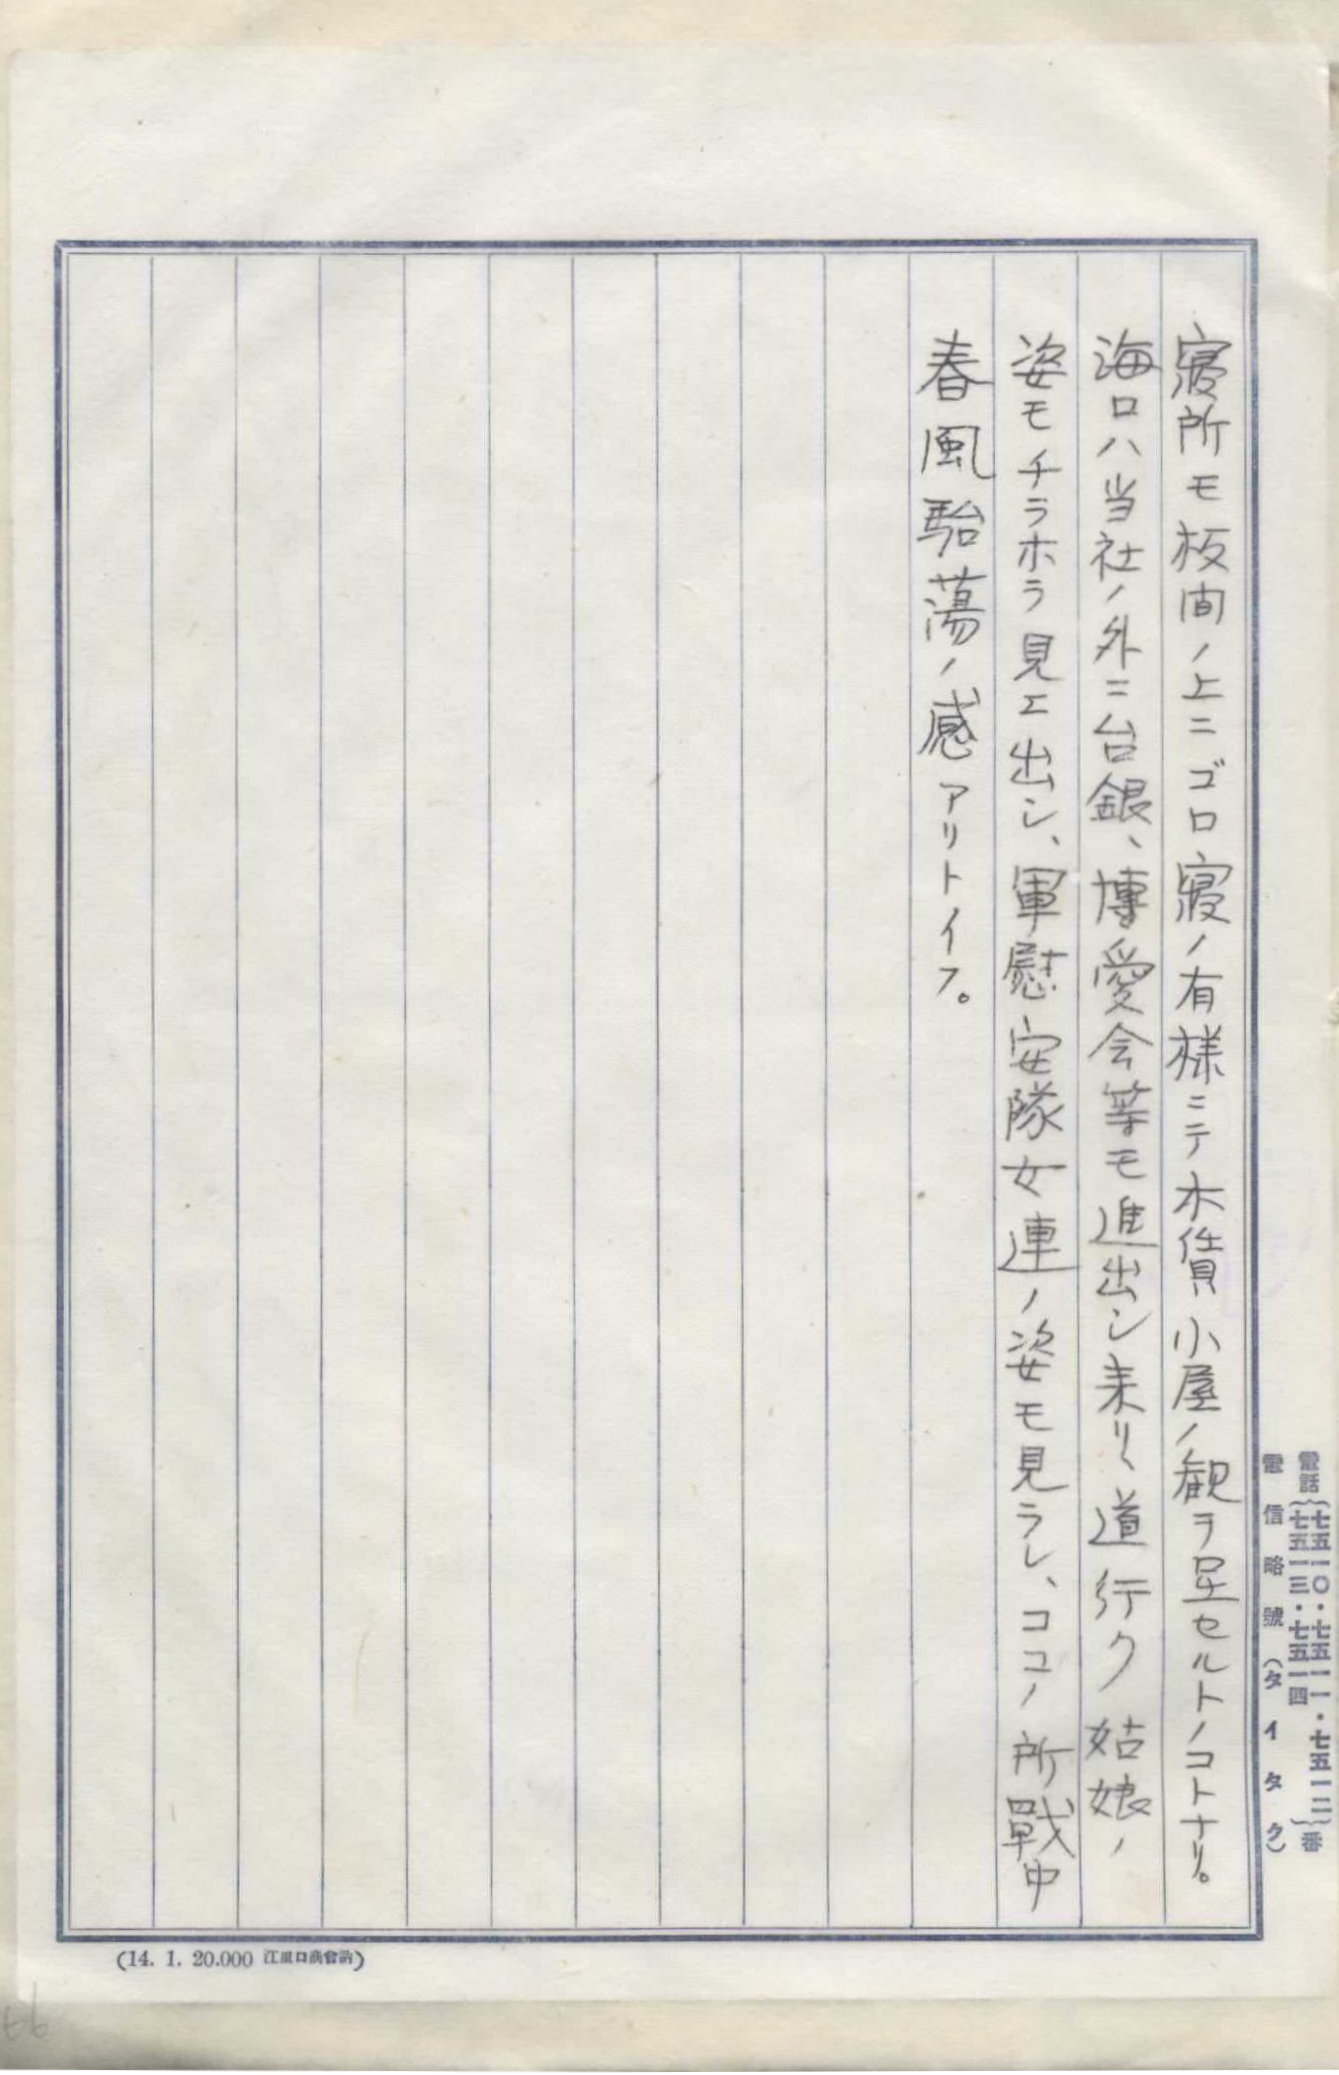 電話{七五一〇・七五一一・七五一二
七五一三・七五一四}番
電信略號(タイタク)
寢所モ板間ノ上ニゴロ寢ノ有様ニテ木賃小屋ノ観ヲ呈セルトノコトナリ。
海口ハ当社ノ外ニ台銀、博愛会等モ進出シ来リ、道行ク姑娘ノ
姿モチラホラ見エ出シ、軍慰安隊女連ノ姿モ見ラレ、ココノ所戰中
春風駘蕩ノ感アリトイフ。
(14. 1. 20.000 江里口商會納)